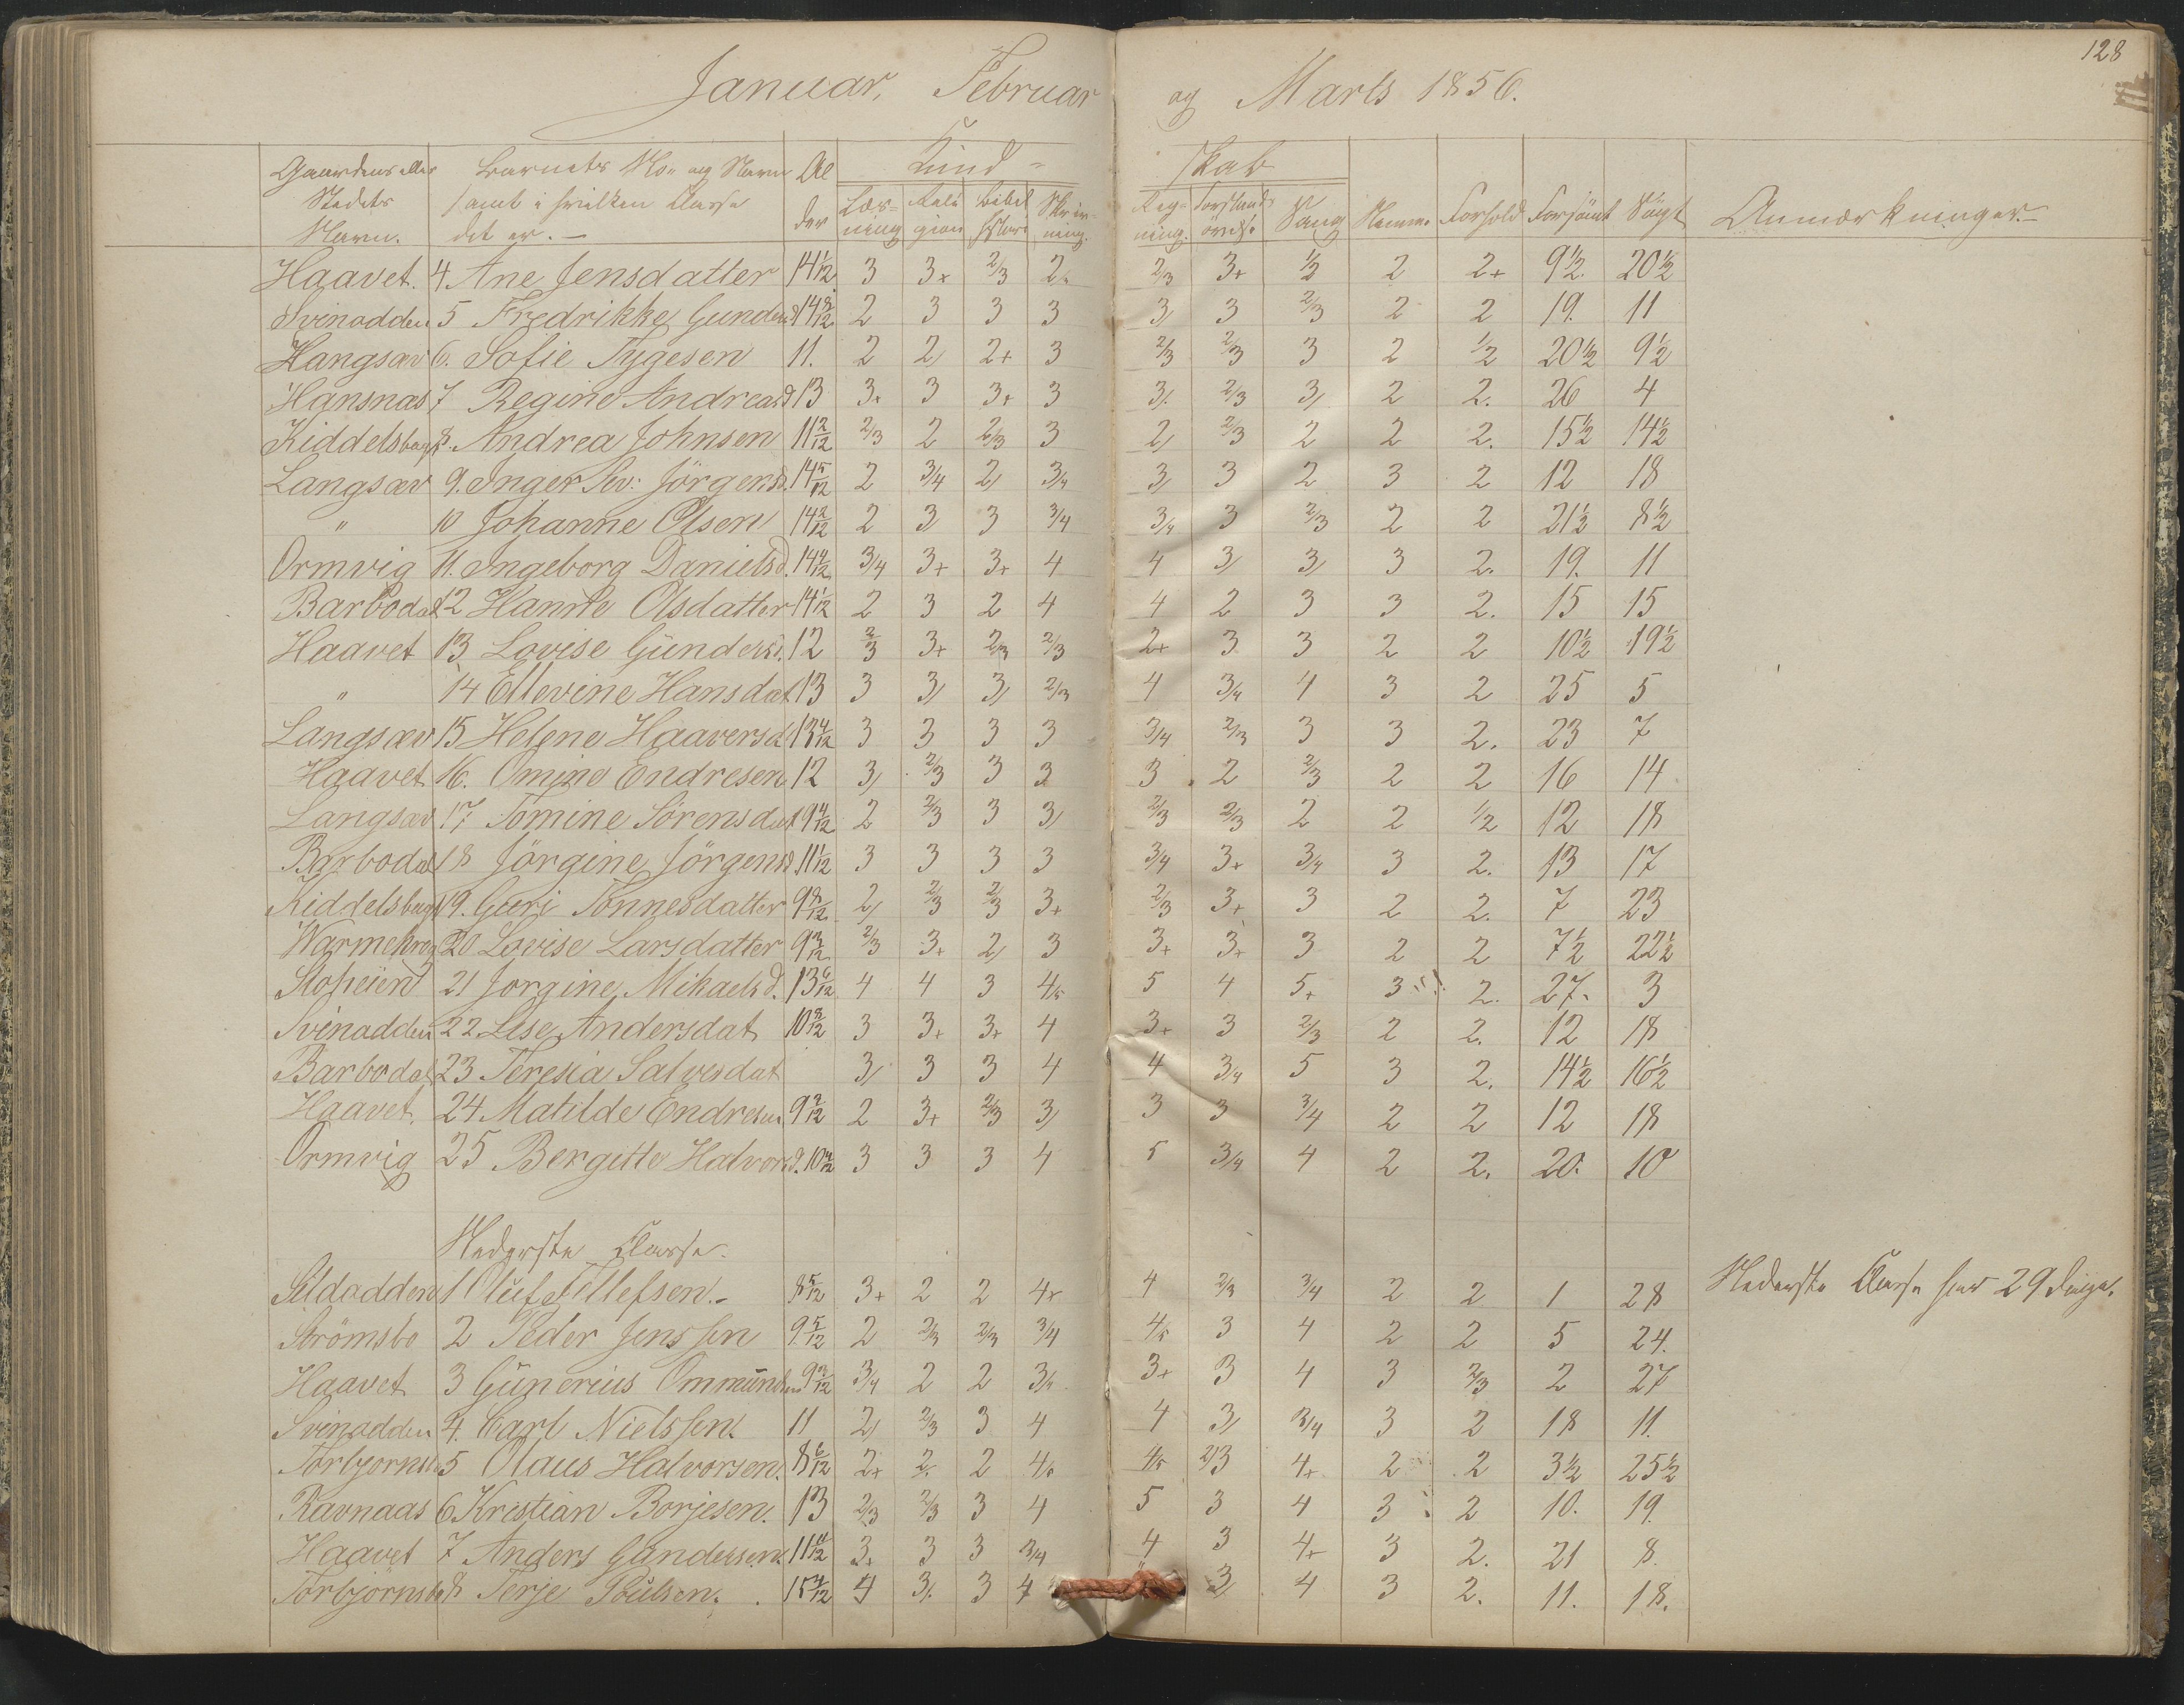 128
Januar, Februar og Marts 1856.
Gaardens eller Stedets Navn. Barnets No. og Navn samt i hvilken Classe det er. — Alder Kundskab Læsning Religion Bibelhistorie Skrivning. Regning. Forstandsøvelse Sang Nemme Forhold Forsømt Søgt Anmærkninger. —
Haavet. 4 Ane Jensdatter 14 1/12 3 3+ 2/3 2/ 2/3 3+ 1/2 2 2+ 9 1/2. 20 1/2
Svinodden 5 Fredrikke Gunders 14 8/12 2 3 3 3 3/ 3 2/3 2 2 19. 11
Hangsæv 6. Sofie Tygesen 11. 2 2/ 2+ 3 2/3 2/3 3 2 1/2 20 1/2 9 1/2
Hansnæs 7 Regine Andreasd 13 3+ 3 3+ 3 3/. 2/3 3/ 2 2. 26 4
Kiddelsbugt 8. Andrea Johnsen 11 2/12 2/3 2 2/3 3 2/ 2/3 2 2 2. 15 1/2 14 1/2
Langsæv 9. Inger Sev: Jörgensd. 14 5/12 2 3/4 2/ 3/4 3/ 3 2 3 2 12 18
" 10 Johanne Olsen 14 2/12 2 3/ 3 3/4 3/4 3 2/3 2 2 21 1/2 8 1/2
Ormvig 11. Ingeborg Danielsd. 14 4/12 3/4 3+ 3+ 4 4 3/ 3/ 3 2. 19. 11
Barbodal 12 Hanne Olsdatter 14 1/12 2 3 2 4 4 2 3 3 2. 15 15
Haavet 13 Lovise Gundersd. 12 2/3 3+ 2/3 2/3 2+ 3 3 2 2 10 1/2 19 1/2
" 14 Ellevine Hansdat 13 3 3/ 3/ 2/3 4 3/4 4 3 2 25 5
Langsæv 15 Helene Haaversd 13 4/12 3 3 3 3 3/4 2/3 3 3 2. 23 7
Haavet 16. Omine Endresen 12 3/ 2/3 3 3 3 2 2/3 2 2 16 14
Langsæv 17 Tomine Sörensdat 9 4/12 2 2/3 3 3/ 2/3 2/3 2 2 1/2 12 18
Barbodal 18 Jörgine Jörgensd 11 1/12 3 3 3 3 3/4 3+ 3/4 3 2. 13 17
Kiddelsbugt 19. Guri Tönnesdatter 9 8/12 2/ 2/3 2/3 3+ 2/3 3+ 3 2 2. 7 23
20 Lovise Larsdatter 9 3/12 2/3 3+ 2/ 3 3+ 3+ 3 2 2 7 1/2 22 1/2
21 Jorgine Mikaelsd. 13 6/12 4 4 3 4/5 5 4 5+ 3 2. 27. 3
Svinodden 22 Lise Andersdat 10 8/12 3 3+ 3+ 4 3+ 3 2/3 2 2. 12 18
Barbodal 23 Teresia Salvesdat 3/ 3 3 4 4 3/4 5 3 2. 14 1/2 16 1/2
Haavet. 24 Matilde Endresen 9 2/12 2 3+ 2/3 3/ 3 3 3/4 2 2 12 18
Ormvig 25 Bergitte Halvorsd. 3 3 3 4 5 3/4 4 2 2. 20. 10
Nederste Classe.
Sildodden 1 Oluf Tellefsen. - 8 5/12 3+ 2 2 4+ 4 2/3 3/4 2 2 1 28 Nederste Classe har 29 Dage.
Strömsbo 2 Peder Jenssen 9 5/12 2 2/3 2/3 3/4 4/5 3 4 2 2 5 24.
Haavet 3 Gunerius Ommunds 9 3/12 3/4 2 2 3/4 3+ 3 4 3 2/3 2 27
Svinodden 4. Carl Nielssen. 11 2/ 2/3 3 4 4 3/ 3/4 3 2 18 11.
5 Olaus Halvorsen. 8 6/12 2+ 2. 2 4/5 4/5 2/3 4+ 2 2 3 1/2 25 1/2
Ravnaas 6 Kristian Borjesen. 13 2/3 2/3 3 4 5 3 4 3 2 10. 19.
Haavet 7 Anders Gundersen. 11 11/12 3+ 3 3 3/4 4 3 4+ 3 2. 21 8.
Torbjörnsbo 8 Terje Poulsen. 4 3/. 3 4 3/ 4 3 2. 11. 18.